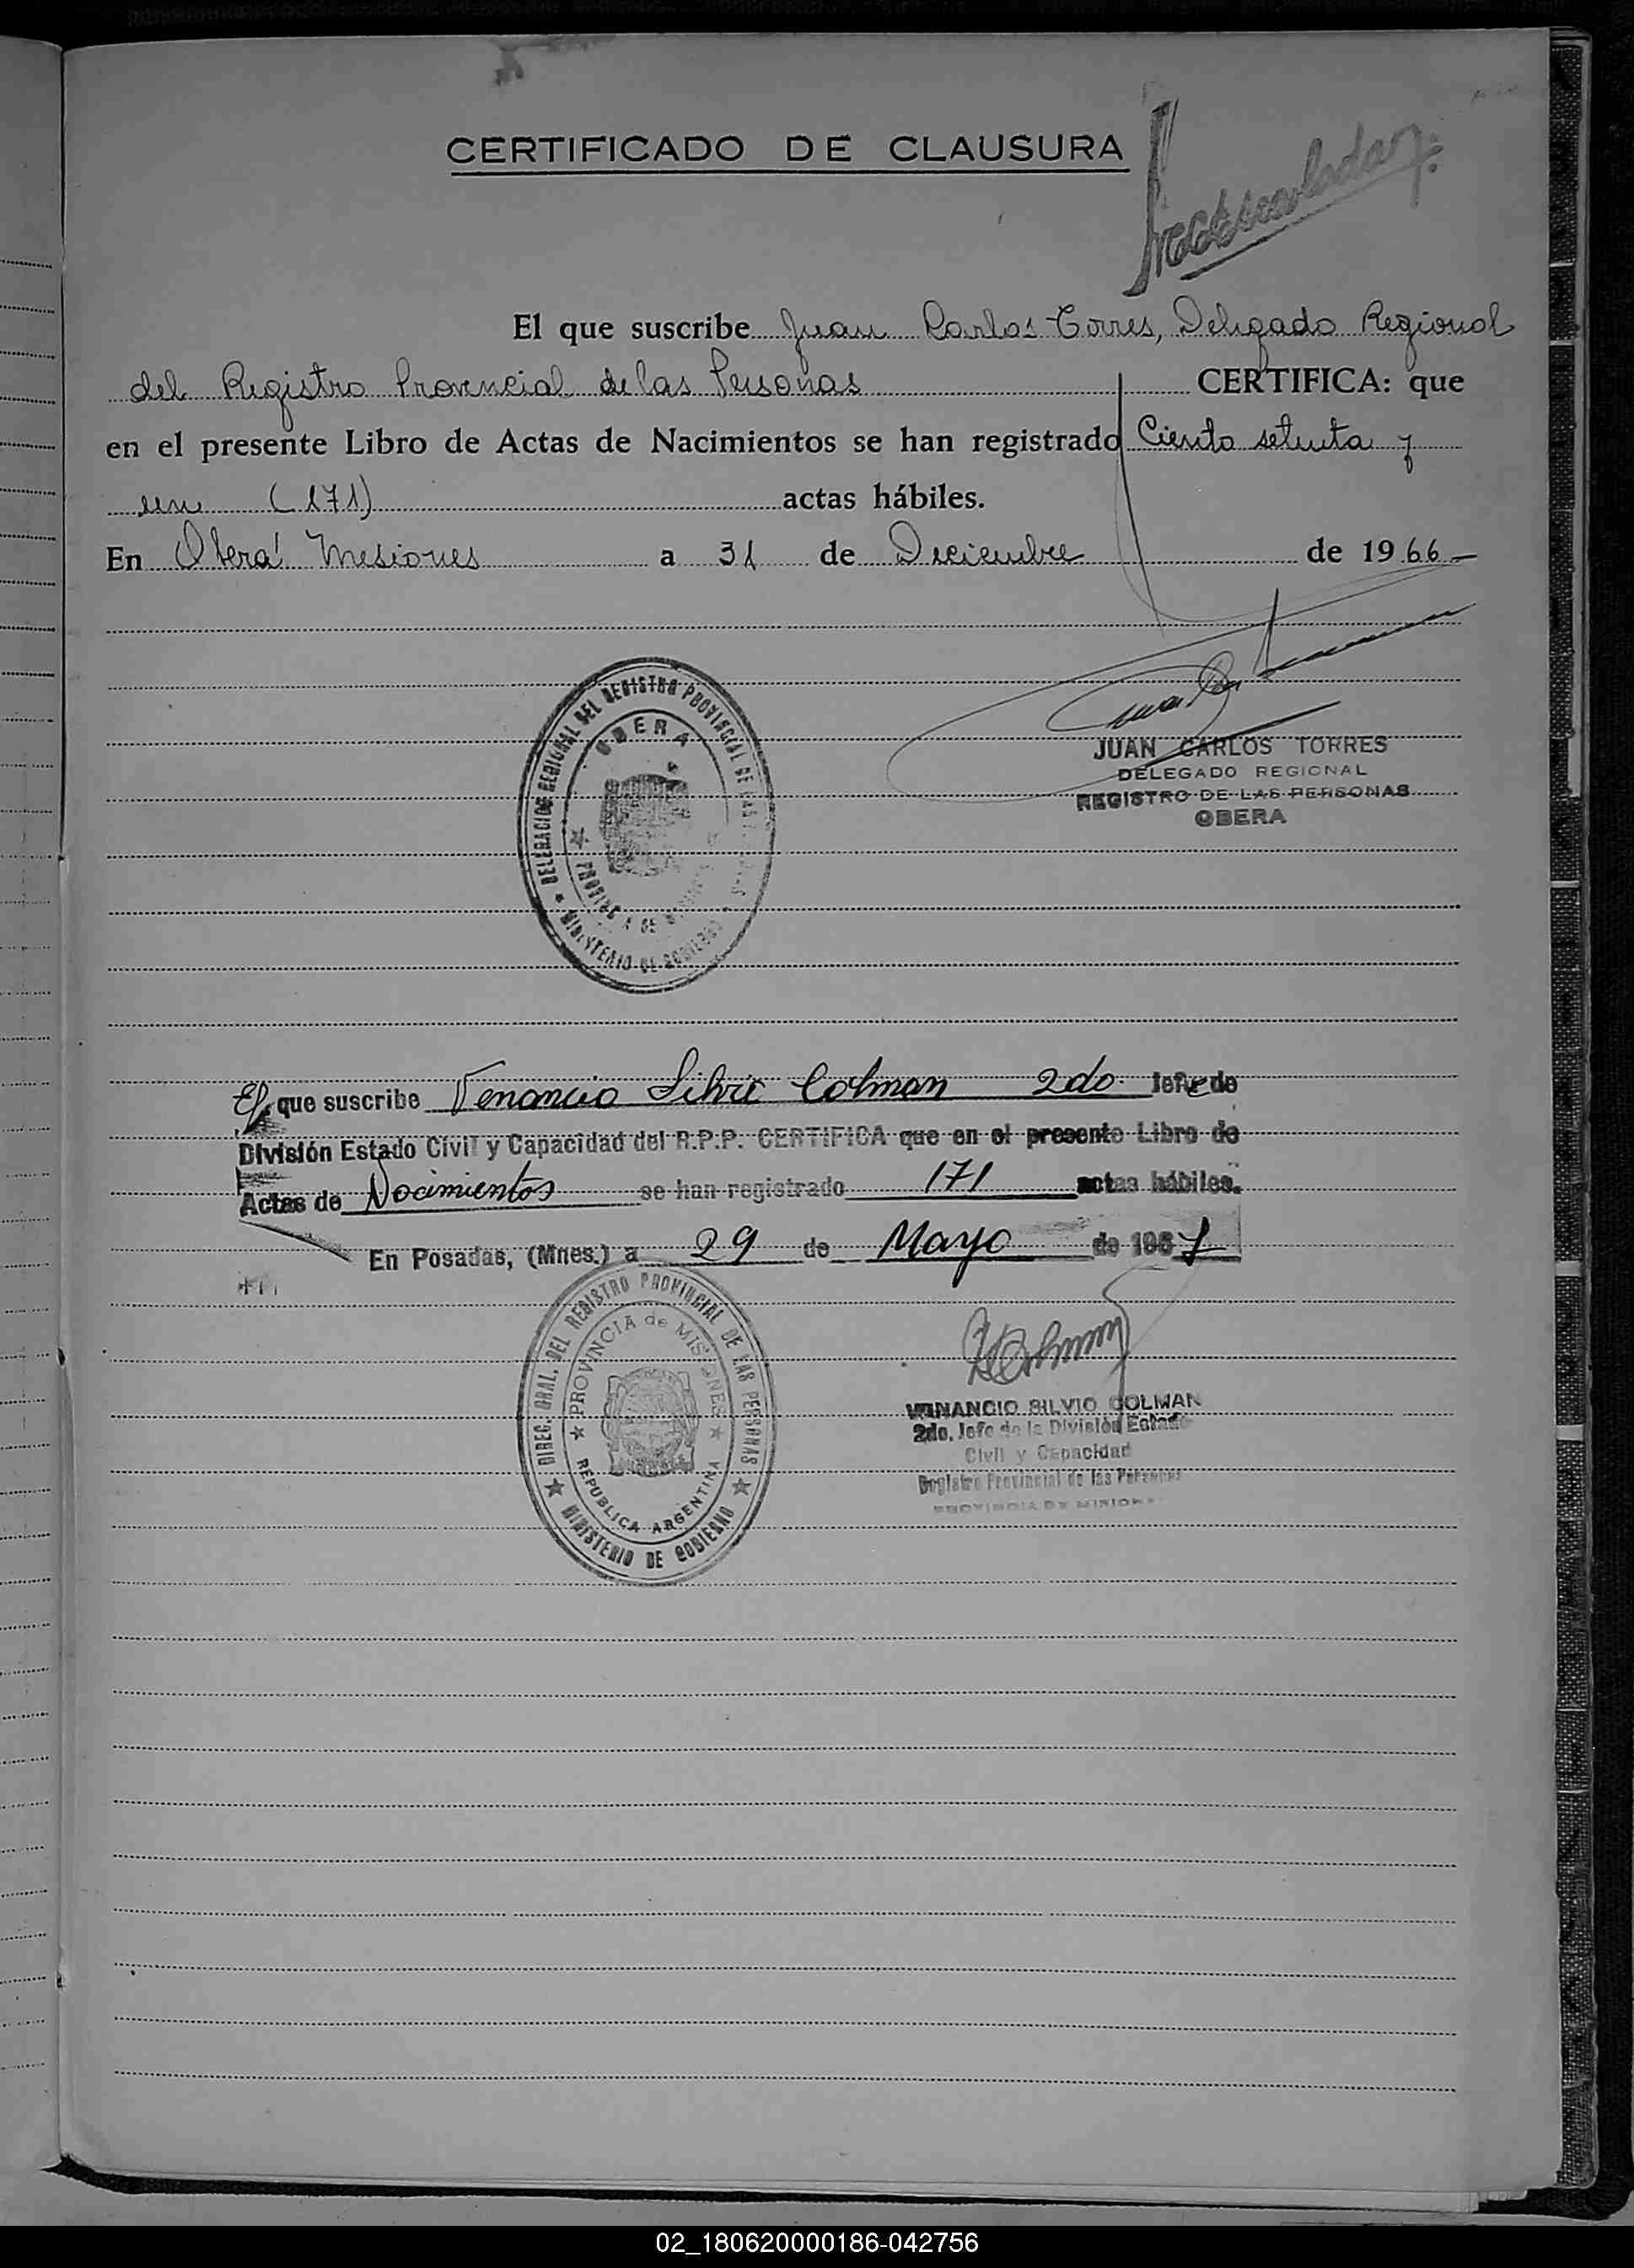 CERTIFICADO DE CLAUSURA
El que suscribe Juan Carlos Torres, Delegado Regional
del Registro Provincial de las Personas CERTIFICA: que
en el presente Libro de Actas de Nacimientos se han registrado Ciento setenta y
un (171) actas hábiles.
En Oberá Misiones a 31 de Diciembre de 1966
DELEGACION REGIONAL DEL REGISTRO PROVINCIAL DE LAS
OBERA
PROVINCIA DE
MINISTERIO DE GOBIERNO
JUAN CARLOS TORRES
DELEGADO REGIONAL
REGISTRO DE LAS PERSONAS
OBERA
El que suscribe Venancio Silvio Colman 2do Jefe de
División Estado Civil y Capacidad del R.P.P. CERTIFICA que en el presente Libro de
Actas de Nacimientos se han registrado 171 actas hábiles.
En Posadas, (Mnes.) a 29 de Mayo de 1967
DIREC. GRAL. DEL REGISTRO PROVINCIAL DE LAS PERSONAS
PROVINCIA de MISIONES
REPUBLICA ARGENTINA
MINISTERIO DE GOBIERNO
VENANCIO SILVIO COLMAN
2do. Jefe de la División Estado
Civil y Capacidad
Registro Provincial de las Personas
PROVINCIA DE MISIONES
02_180620000186-042756